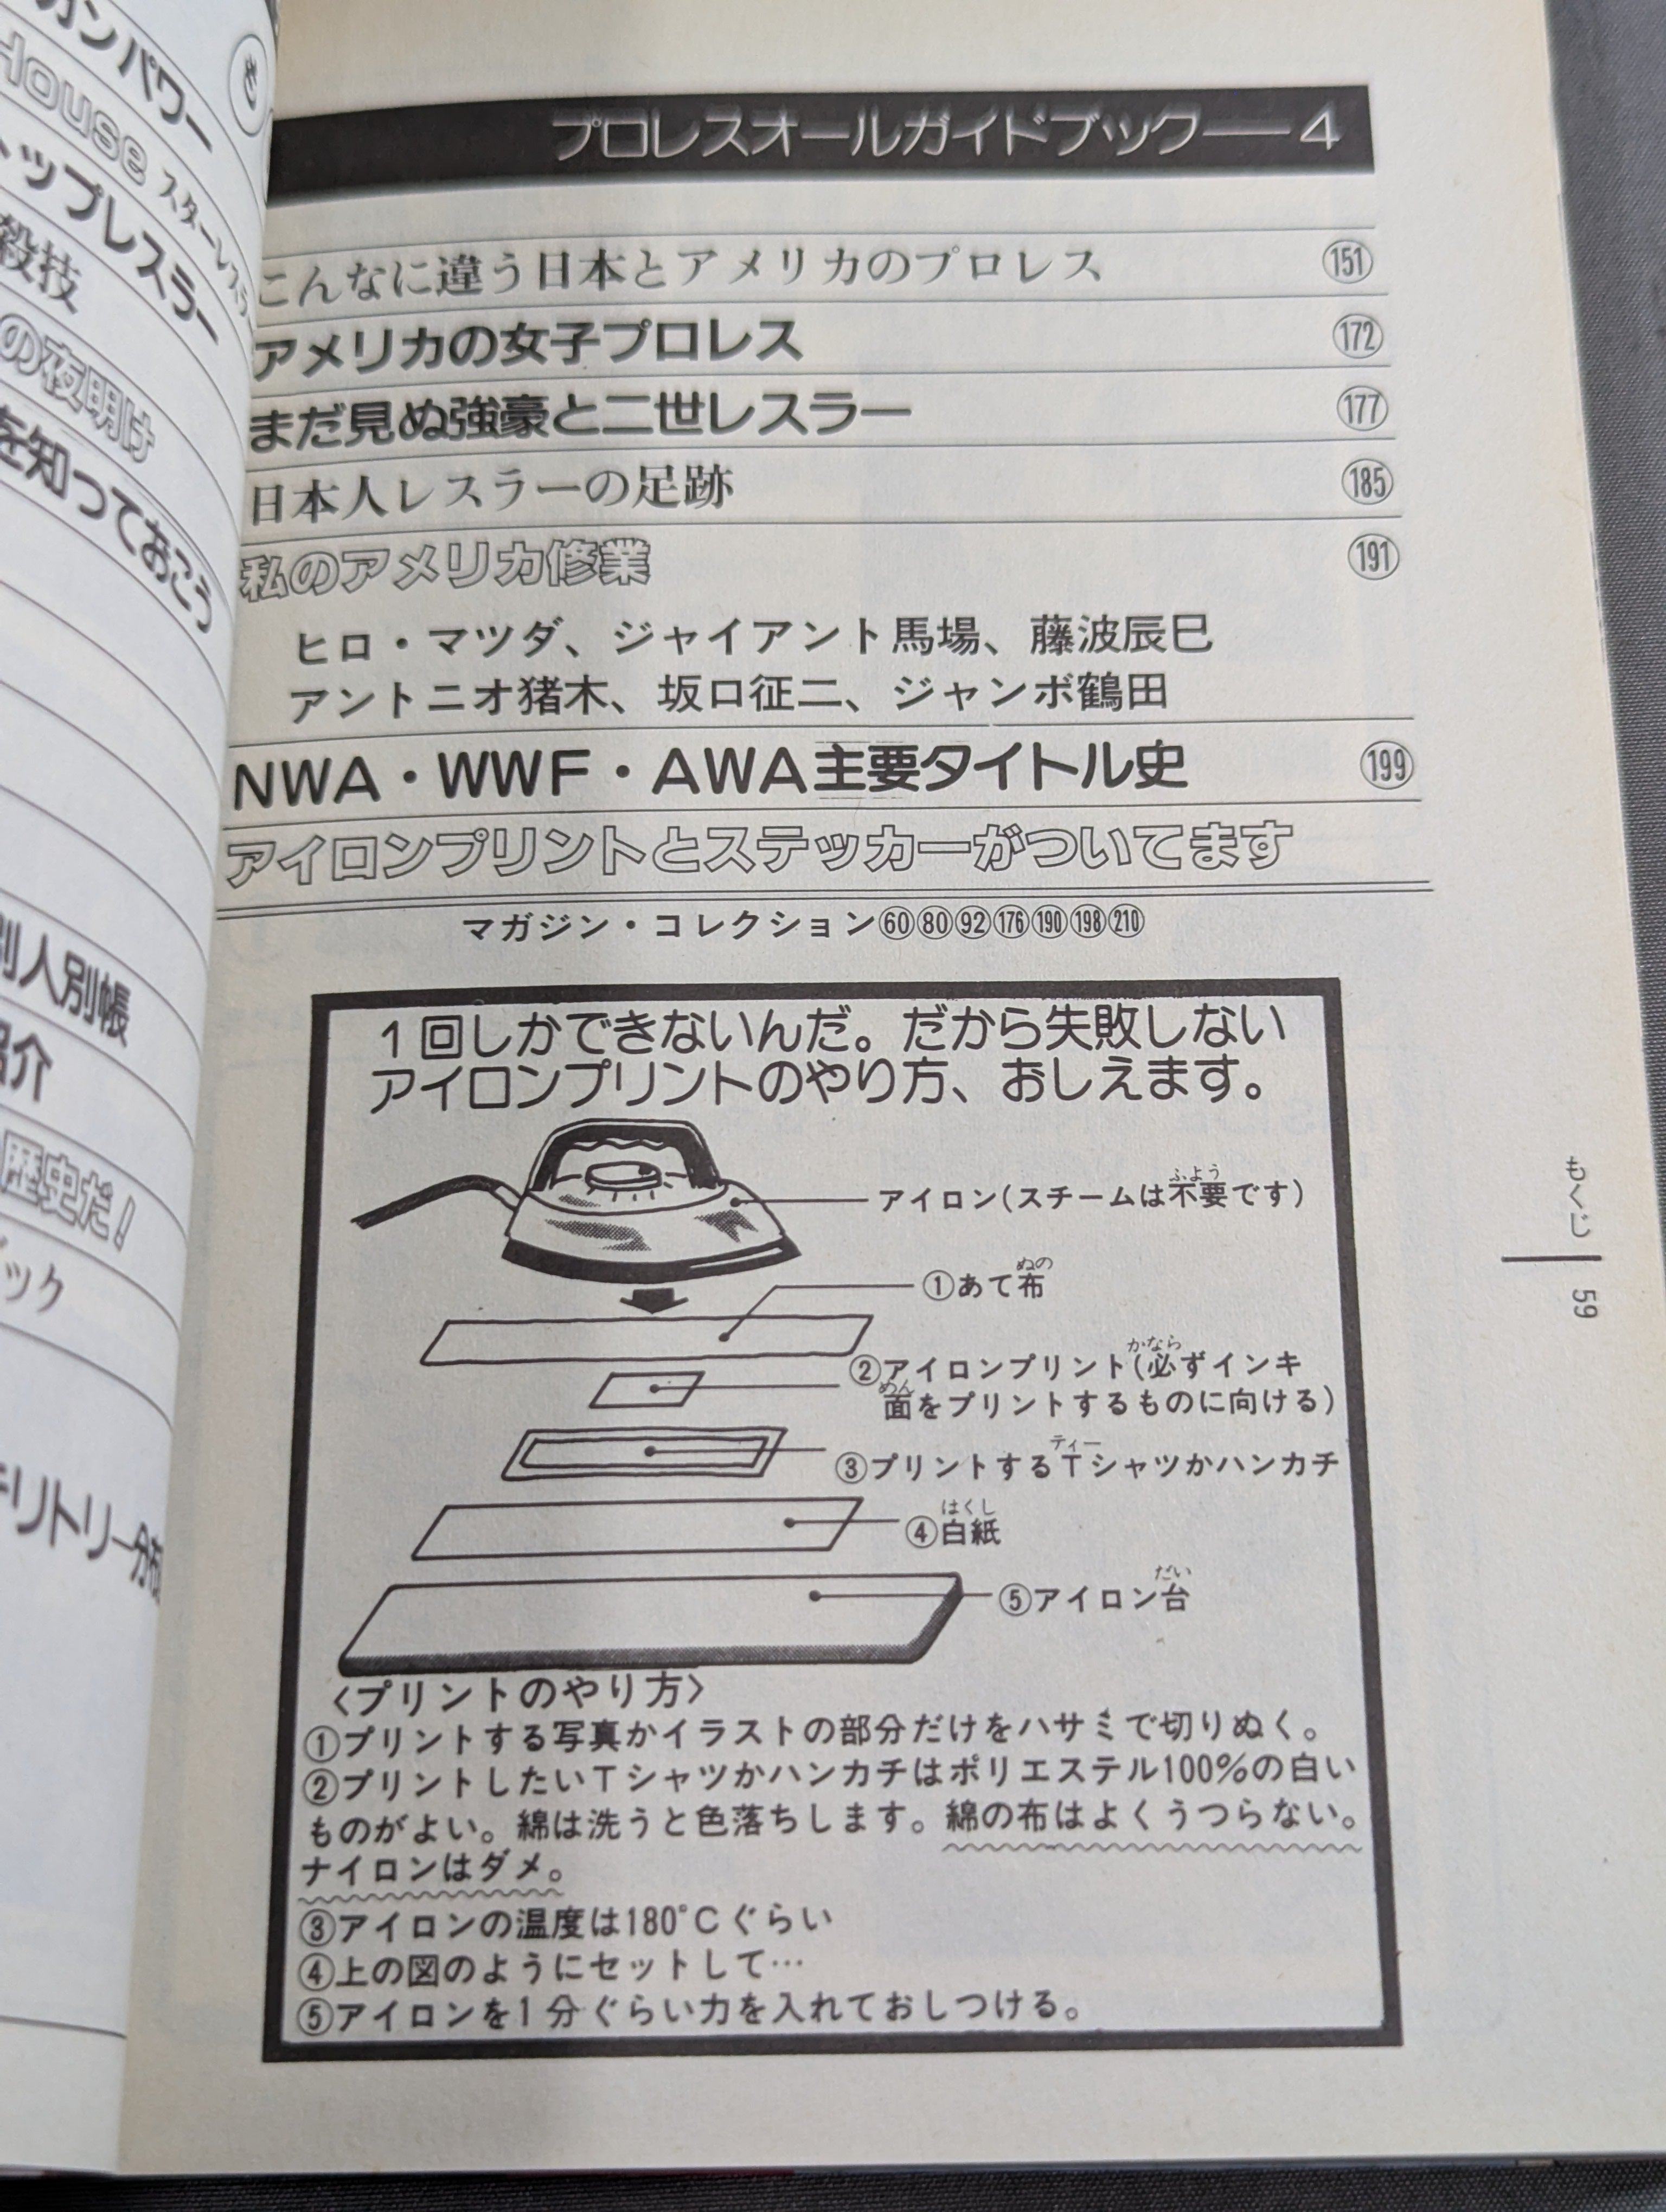 プロレスオールガイドブック――4
こんなに違う日本とアメリカのプロレス 151
アメリカの女子プロレス 172
まだ見ぬ強豪と二世レスラー 177
日本人レスラーの足跡 185
私のアメリカ修業 191
ヒロ・マツダ、ジャイアント馬場、藤波辰巳
アントニオ猪木、坂口征二、ジャンボ鶴田
NWA・WWF・AWA主要タイトル史 199
アイロンプリントとステッカーがついてます
マガジン・コレクション60 80 92 176 190 198 210
1回しかできないんだ。だから失敗しない
アイロンプリントのやり方、おしえます。
アイロン(スチームは不要です)
①あて布
②アイロンプリント(必ずインキ
面をプリントするものに向ける)
③プリントするTシャツかハンカチ
④白紙
⑤アイロン台
〈プリントのやり方〉
①プリントする写真かイラストの部分だけをハサミで切りぬく。
②プリントしたいTシャツかハンカチはポリエステル100%の白い
ものがよい。綿は洗うと色落ちします。綿の布はよくうつらない。
ナイロンはダメ。
③アイロンの温度は180°Cぐらい
④上の図のようにセットして…
⑤アイロンを1分ぐらい力を入れておしつける。
もくじ
59
カンパワー
House スターレスラー
トップレスラー
殺技
の夜明け
を知っておこう
別人別帳
紹介
歴史だ!
ック
テリトリー分布